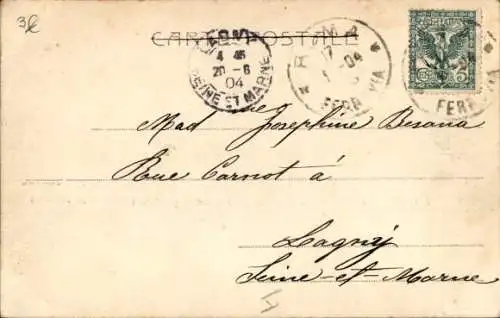 3€
CARTE POSTALE
4 45
20 - 6
04
SEINE ET MARNE
ROMA
17
04
FERROVIA
FERROVIA
Mad Josephine Besana
Rue Carnot á
Lagny
Seine-et-Marne